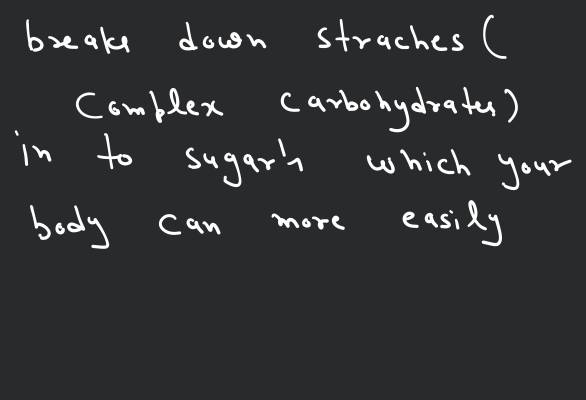 breaks down straches (
Complex Carbohydrates)
in to sugar's which your
body can more easily